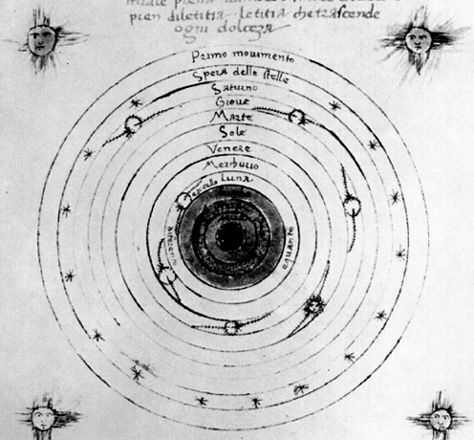 pien diletitia letitia che trascende
ogni dolceza
Primo movimento
Spera delle stelle
Saturno
Giove
Marte
Sole
Venere
Merchurio
Luna